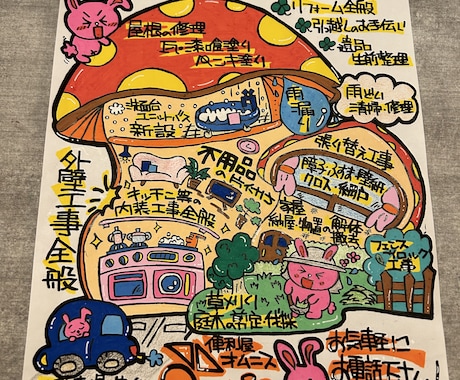 屋根の修理
瓦・漆喰塗り
ペンキ塗り
リフォーム全般
引越しお手伝い
遺品
生前整理
雨どい
清掃・修理
雨漏り
洗面台
ユニットバス
新設
張り替え工事
障子・ふすま・壁紙
クロス・網戸
不用品
の片付け
外壁工事全般
キッチン等の
内装工事全般
家屋
納屋・物置の解体
撤去
フェンス
ブロック
工事
草刈り
庭木の剪定伐採
便利屋
オムニス
お気軽に
お電話下さい